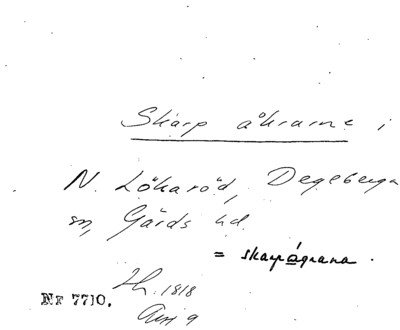 Skarp åkrarne i
N. Lökaröd, Degeberga
sn, Gärds hd.
= skarpågrana.
Nr 7710.
1818
9